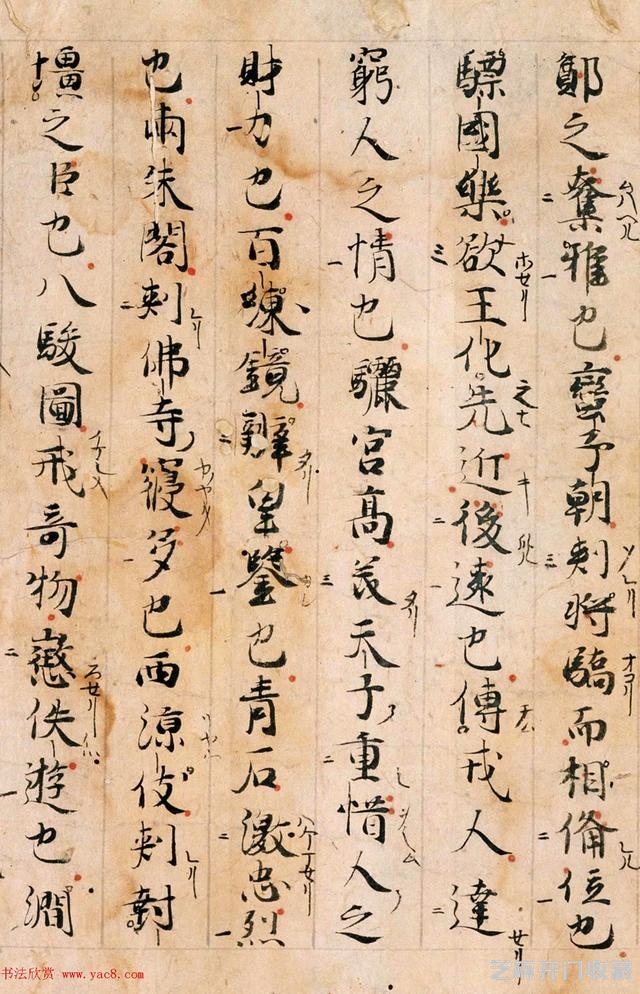 鄭之奪雅也蠻子朝刺將驕而相備位也
驃國樂欲王化先近後遠也傳戎人達
窮人之情也驪宮高美天子重惜人之
財力也百煉鏡辯皇鑒也青石激忠烈
也兩朱閣刺佛寺寖多也西涼伎刺封
疆之臣也八駿圖戒奇物懲佚遊也澗
书法欣赏 www.yac8.com